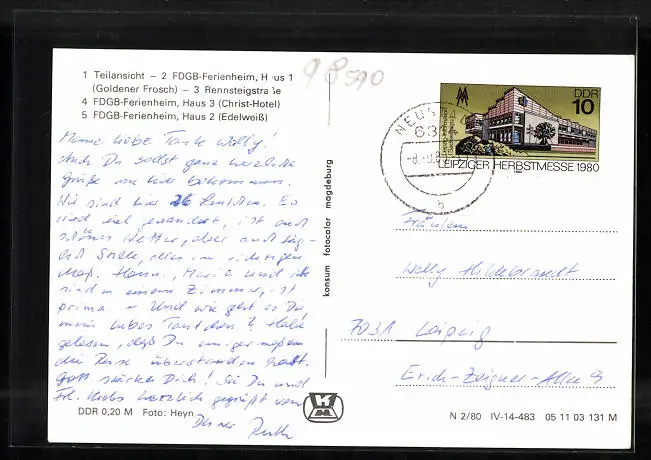 98590
1 Teilansicht – 2 FDGB-Ferienheim, Haus 1
(Goldener Frosch) – 3 Rennsteigstraße
4 FDGB-Ferienheim, Haus 3 (Christ-Hotel)
5 FDGB-Ferienheim, Haus 2 (Edelweiß)
Meine liebe Tante Wally!
Auch Du sollst ganz herzliche
Grüße von hier bekommen.
Wir sind hier 26 Leutchen. Es
wird viel gewandert, ist auch
schönes Wetter, aber auch täg-
lich Stille, alles im richtigen
Maß. Hanna, Maria und ich
sind in einem Zimmer, ist
prima – Und wie geht es Dir
mein liebes Tantchen? Habe
gelesen, daß Du einigermaßen
die Reise überstanden hast.
Gott stärke Dich! Sei Du und
Frl. Krebs herzlich gegrüßt von
Deiner Ruth
DDR 0,20 M Foto: Heyn
konsum fotocolor magdeburg
DDR
10
LEIPZIGER HERBSTMESSE 1980
NEUST
Fräulein
Wally Hildebrandt
7031 Leipzig
Erich-Zeigner-Allee 9
N 2/80 IV-14-483 05 11 03 131 M